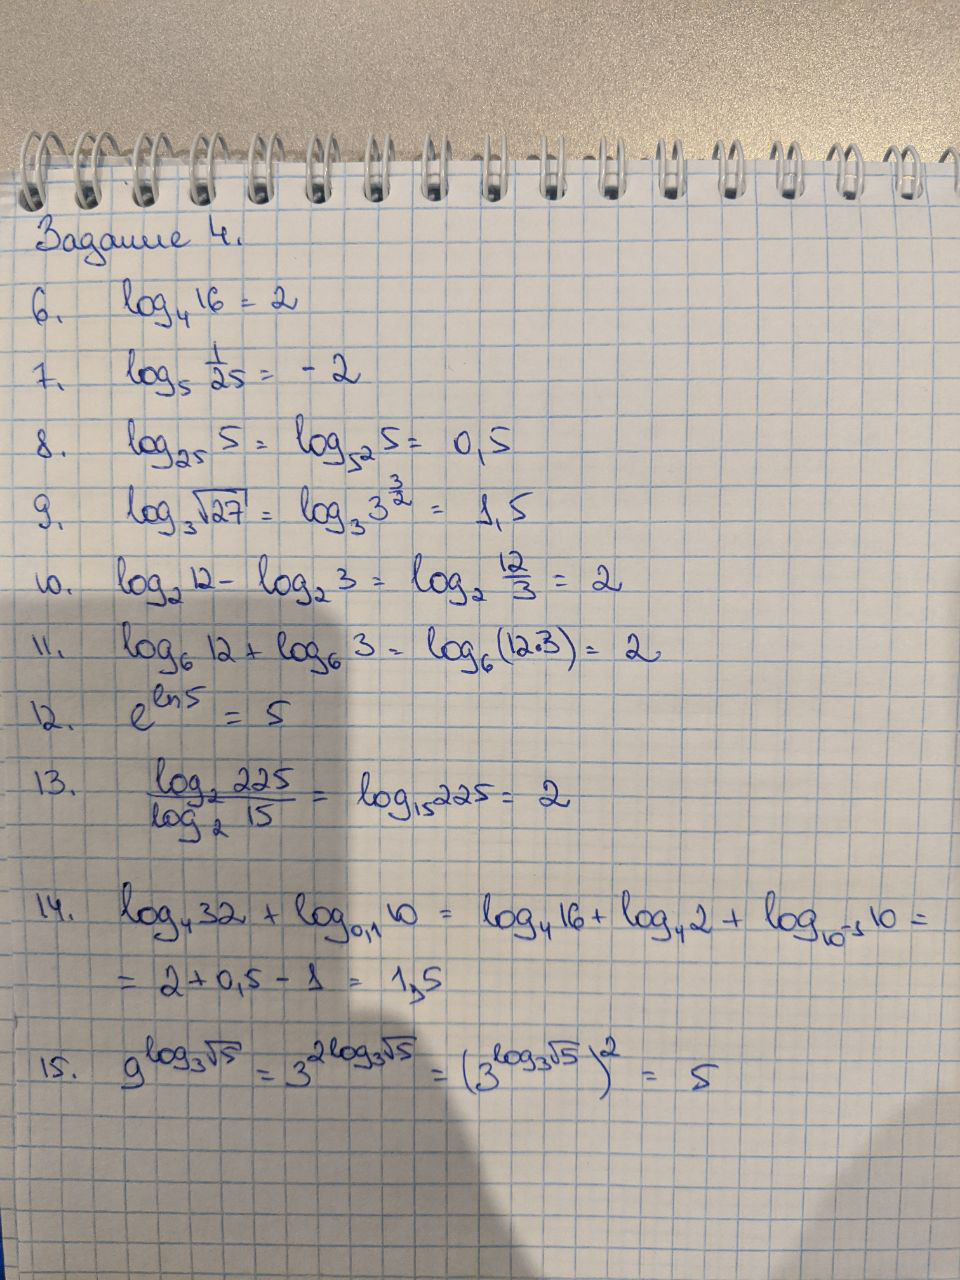 Задание 4.
6. log₄ 16 = 2
7. log₅ 1/25 = - 2
8. log₂₅ 5 = log₅² 5 = 0,5
9. log₃ √27 = log₃ 3^(3/2) = 1,5
10. log₂ 12 - log₂ 3 = log₂ 12/3 = 2
11. log₆ 12 + log₆ 3 = log₆ (12·3) = 2
12. e^(ln5) = 5
13. log₂ 225 / log₂ 15 = log₁₅ 225 = 2
14. log₄ 32 + log₀,₁ 10 = log₄ 16 + log₄ 2 + log₁₀⁻¹ 10 =
= 2 + 0,5 - 1 = 1,5
15. 9^(log₃√5) = 3^(2log₃√5) = (3^(log₃√5))² = 5